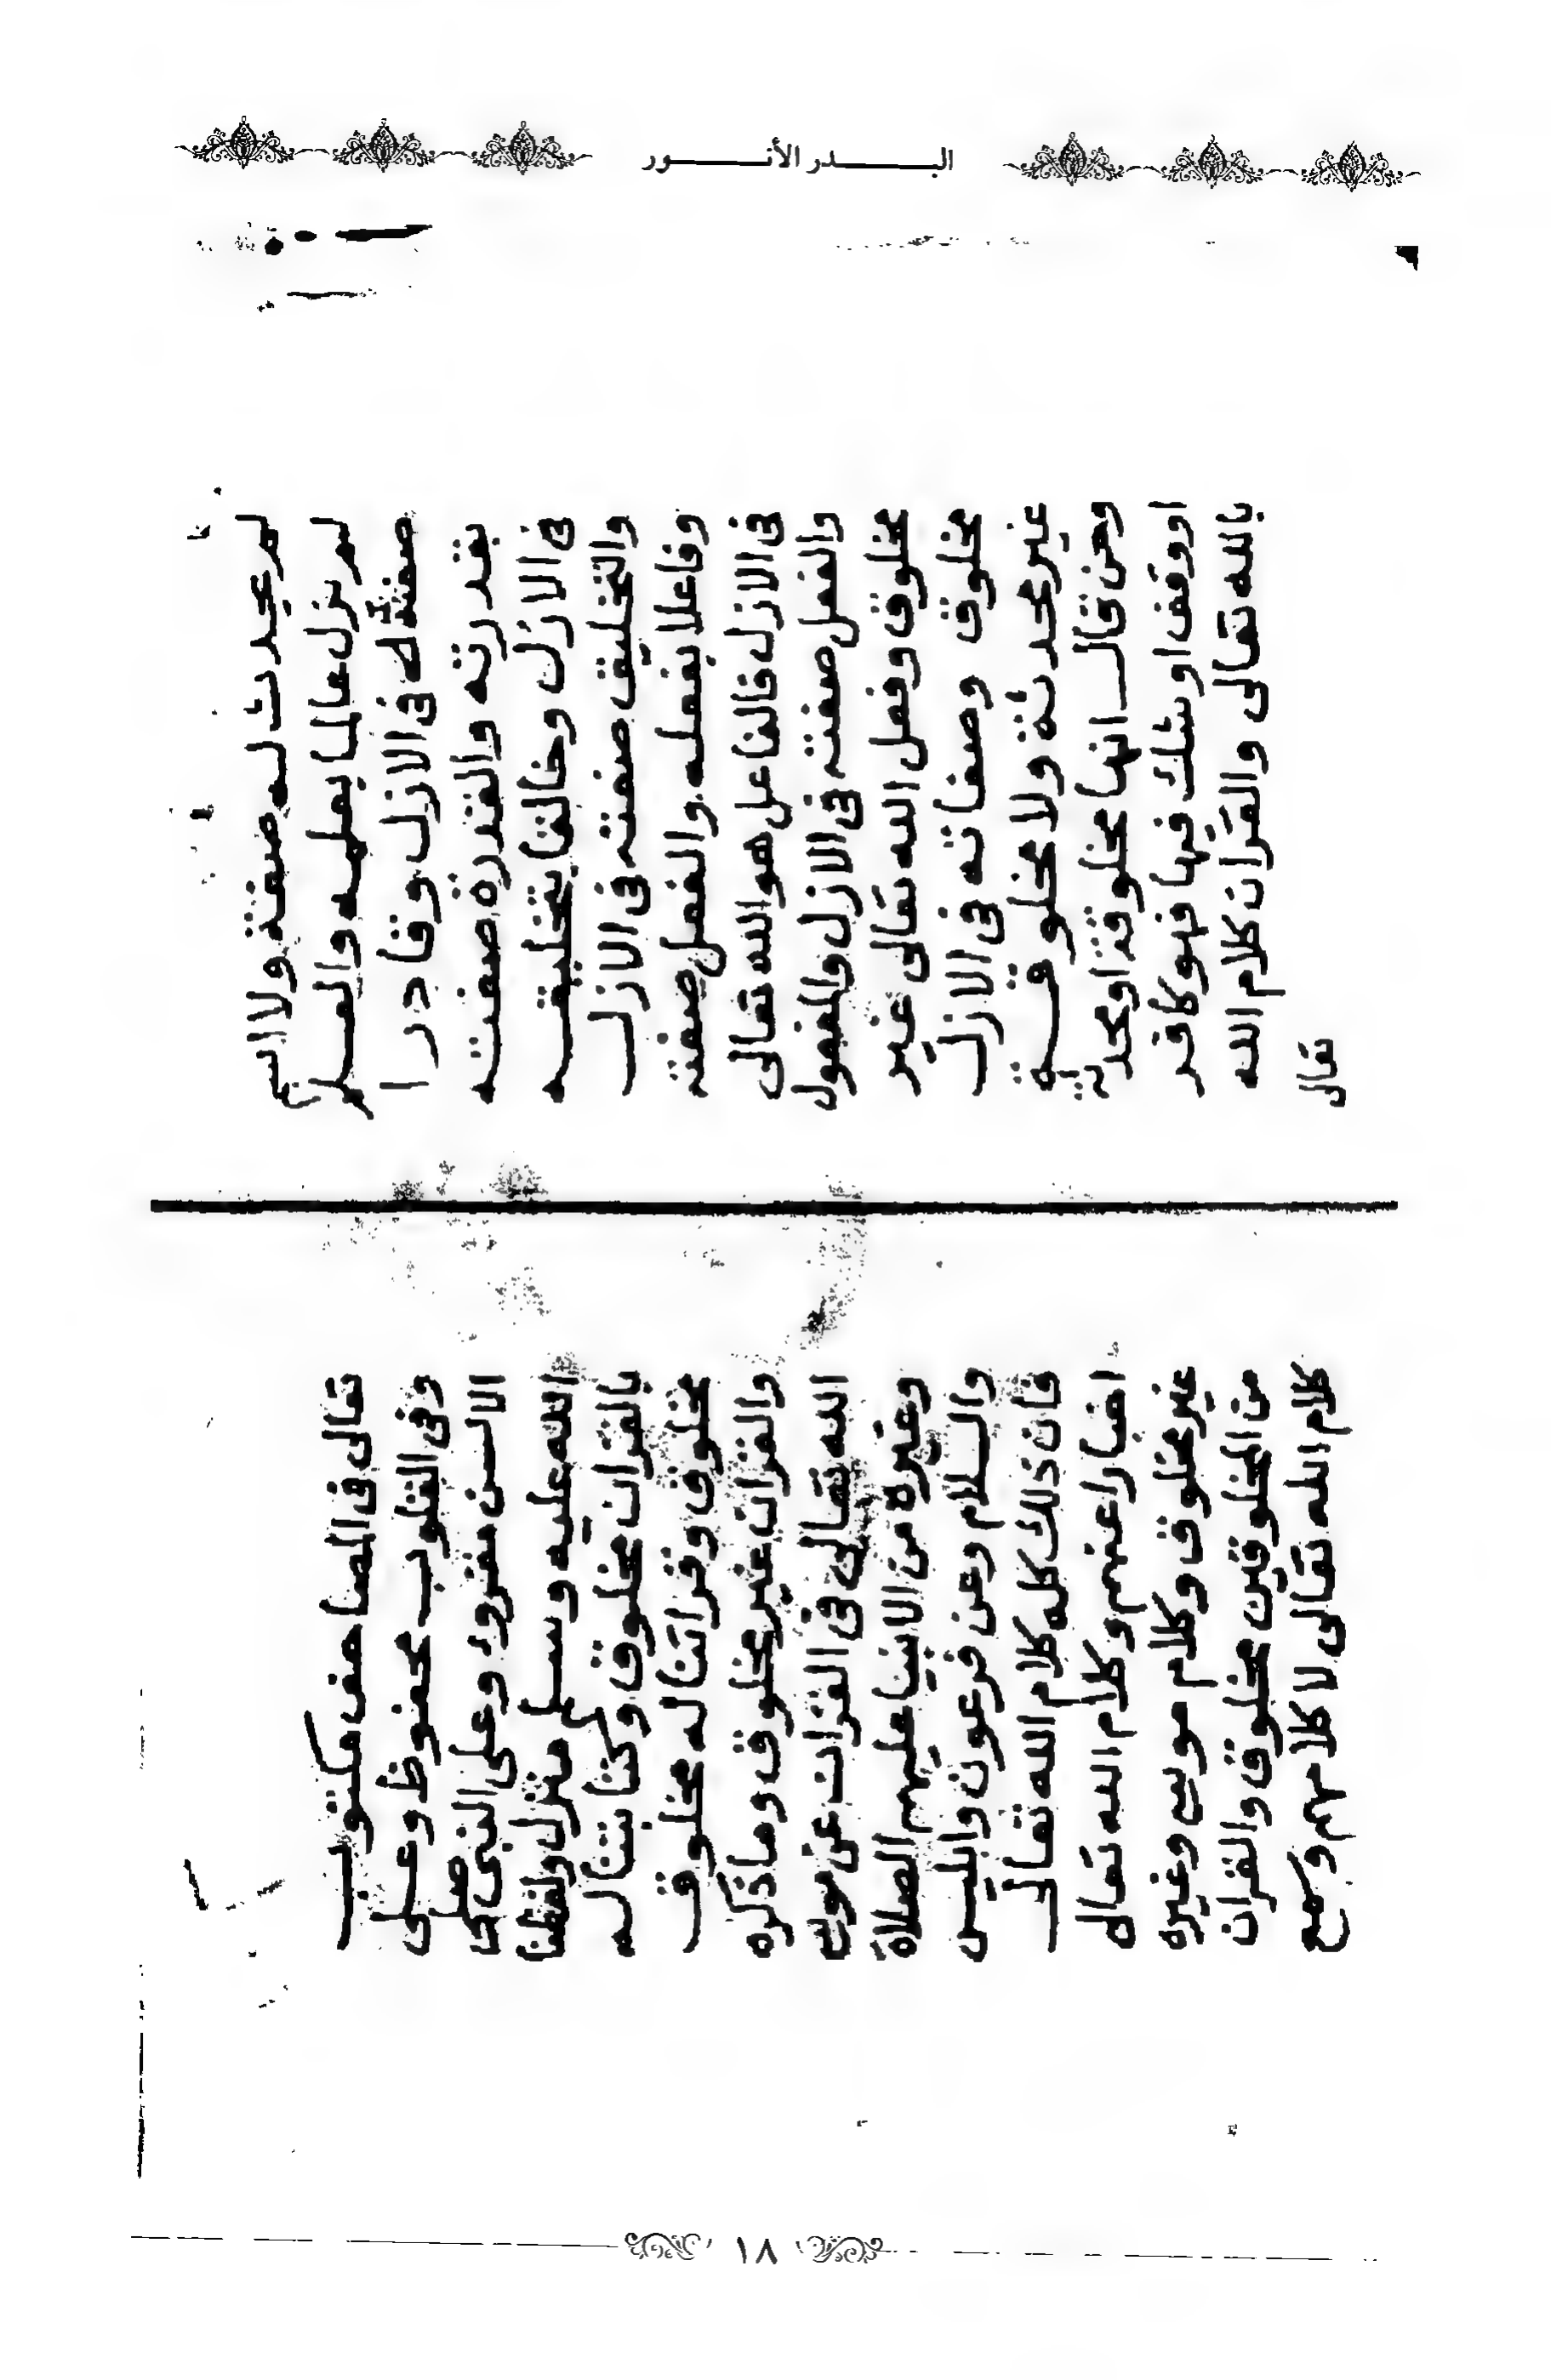 البدر الأنور
لم يحدث له صفة ولا اسم
لم يزل عالما بعلمه والعلم
صفة له فى الازل وقادرا
بقدرته والقدرة صفته
فى الازل وخالقا بتخليقه
والتخليق صفته فى الازل
وفاعلا بفعله والفعل صفته
فى الازل فالفاعل هو الله تعالى
والفعل صفته فى الازل والمفعول
مخلوق وفعل الله تعالى غير
مخلوق وصفاته فى الازل
غير محدثة ولا مخلوقة
ومن قال انها مخلوقة او محدثة
او وقف او شك فيها فهو كافر
بالله تعالى والقران كلام الله
تعالى
تعالى فى المصاحف مكتوب
وفى القلوب محفوظ وعلى
الالسن مقروء وعلى النبى صلى
الله عليه وسلم منزل ولفظنا
بالقران مخلوق وكتابتنا له
مخلوق وقراتنا له مخلوق
والقران غير مخلوق وما ذكره
الله تعالى فى القران عن موسى
وغيره من الانبيا عليهم الصلاة
والسلام وعن فرعون وابليس
فان ذلك كله كلام الله تعالى
اخبارا عنهم وكلام الله تعالى
غير مخلوق وكلام موسى وغيره
من المخلوقين مخلوق والقران
كلام الله تعالى لا كلامهم وسمع
١٨